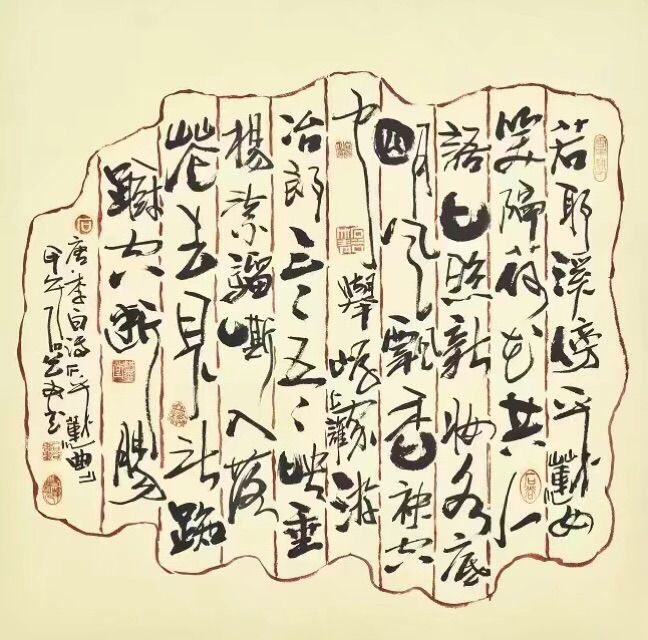 若耶溪傍采蓮女
笑隔荷花共人
語日照新妝水底
明風飄香袂空
中舉岸上誰家游
冶郎三々五々映垂
楊紫騮嘶入落
花去見此踟
躕空斷腸
唐李白詩采蓮曲